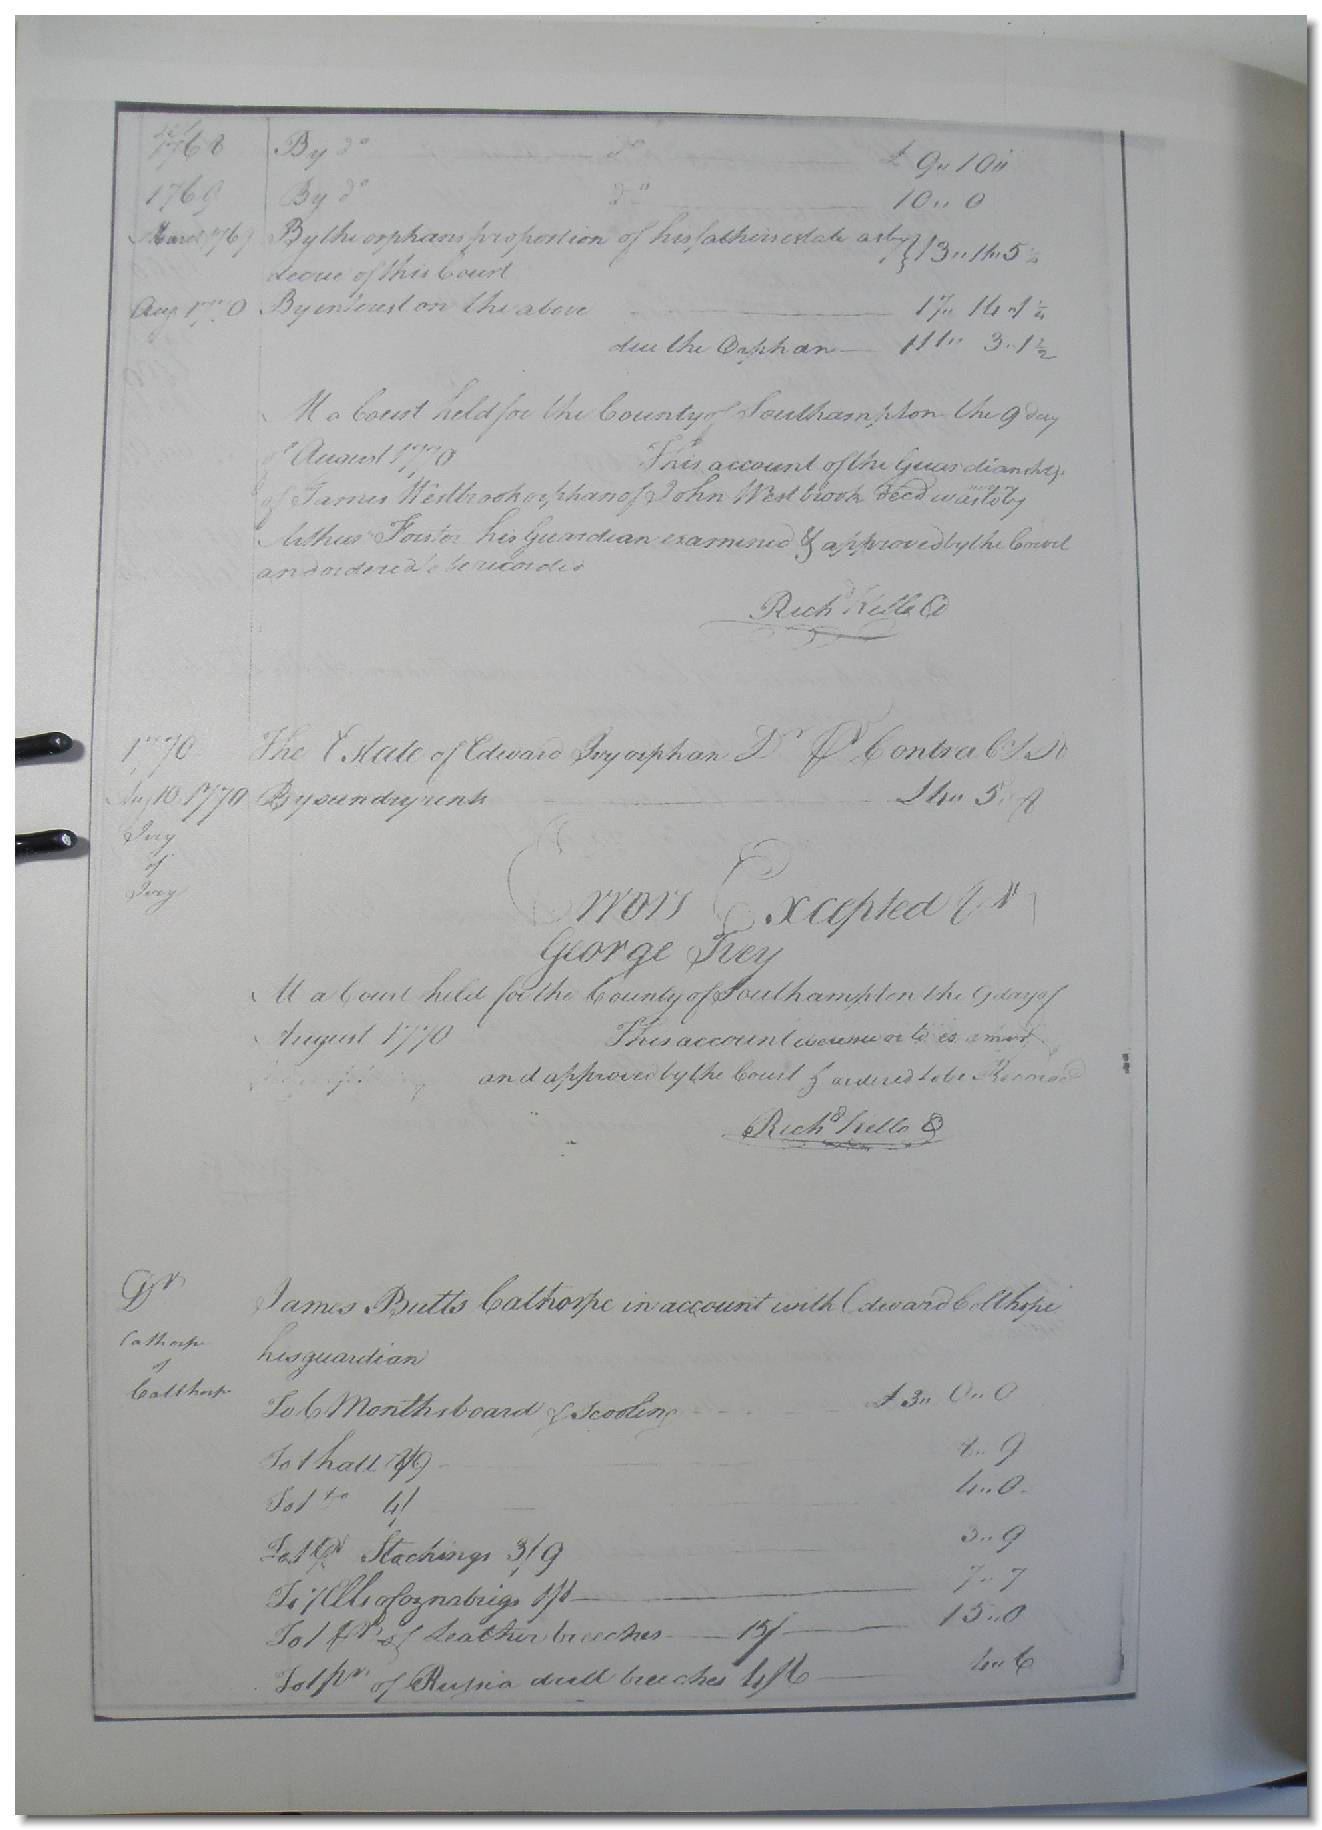 1768 By do do £ 9" 10"
1769 By do do 10" 0
March 1769 By the orphans proportion of his fathers estate as by
decree of this Court
Aug 1770 By interest on the above
due the Orphan 3" 1 1/2
At a Court held for the County of Southampton the 9 day
of August 1770 This account of the Guardianship
of James Westbrook orphan of John Westbrook Decd was
Arthur Foster his Guardian examined & approved by the Court
and ordered to be recorded
Richd Kello
1770 The Estate of Edward Ivy orphan Dr Pr Contra
Aug 10 1770 By sundry rents
Ivy
of
Ivey
Errors Excepted Pr
George Ivey
At a Court held for the County of Southampton the 9 day of
August 1770 This account was
and approved by the Court & ordered to be Recorded
Richd Kello
Dr James Butts Calthorpe in account with Edward Colthorpe
Cathorp
of
Calthorp
his guardian
To 6 Months board & scooling £ 3" 0" 0
To 1 hatt 8/9 8" 9
To 1 do 4/ 4" 0
To 1 pr Stockings 3/9 3" 9
To 7 Ells of oznabrigs 1/1 7" 7
To 1 pr of Leather breeches 15/ 15" 0
To 1 pr of Russia drill breeches 4/6 4" 6